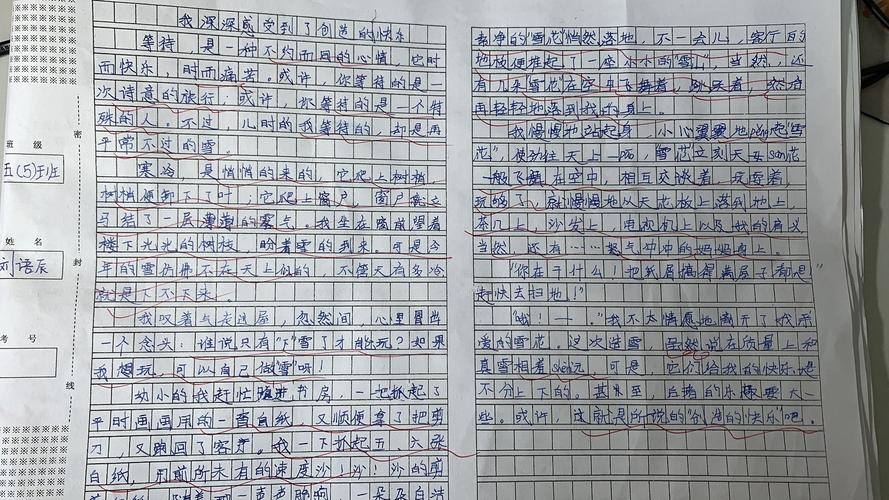 班级
五(5)班
姓名
刘语辰
考号
密
封
线
我深深感受到了创造的快乐
等待，是一种不约而同的心情，它时
而快乐，时而痛苦。或许，你等待的是一
次诗意的旅行；或许，你等待的是一个特
殊的人。不过，儿时的我等待的，却是再
平常不过的雪。
寒冷，是悄悄的来的，它爬上树梢，
树梢便卸下了叶；它爬上窗户，窗户就立
马结了一层薄薄的雾气。我坐在窗前望着
楼下光光的树枝，盼着雪的到来，可是今
年的雪仿佛不在天上似的，不管天有多冷
就是下不下来。
我叹着气走进屋，忽然间，心里冒出
一个念头：谁说只有"下"雪了才能玩？如果
我想玩，可以自己"做雪"呀！
幼小的我赶忙跑进书房，一把抓起了
平时画画用的一沓白纸，又顺便拿了把剪
刀，又跑回了客厅。我一下抓起五、六张
白纸，用前所未有的速度沙！沙！沙的剪
一声声脆响，一朵朵白洁
素净的"雪花"悄然落地，不一会儿，客厅的
地板便堆起了一座小小的"雪山"，当然，还
有几朵"雪花"在空中飞舞着，跳跃着，然后
再轻轻地落到我的身上。
我慢慢地站起身，小心翼翼地pěng起"雪
花"，使劲往天上一pāo，雪花立刻天女sàn花
一般飞舞在空中，相互交谈着，玩耍着，
玩够了，就慢慢地从天花板上落到地上，
茶几上，沙发上，电视机上以及我的肩上
当然，还有……怒气冲冲的妈妈身上。
"你在干什么！把纸屑搞得满屋子都是"
赶快去扫地！"
"哦！——。"我不太情愿地离开了我那
造的雪花。这次造雪，虽然说在质量上和
真雪相差shèn远，可是，它们给我的快乐是
不分上下的。甚至，自造的乐趣要大一
些。或许，这就是所说的"创造的快乐"吧。